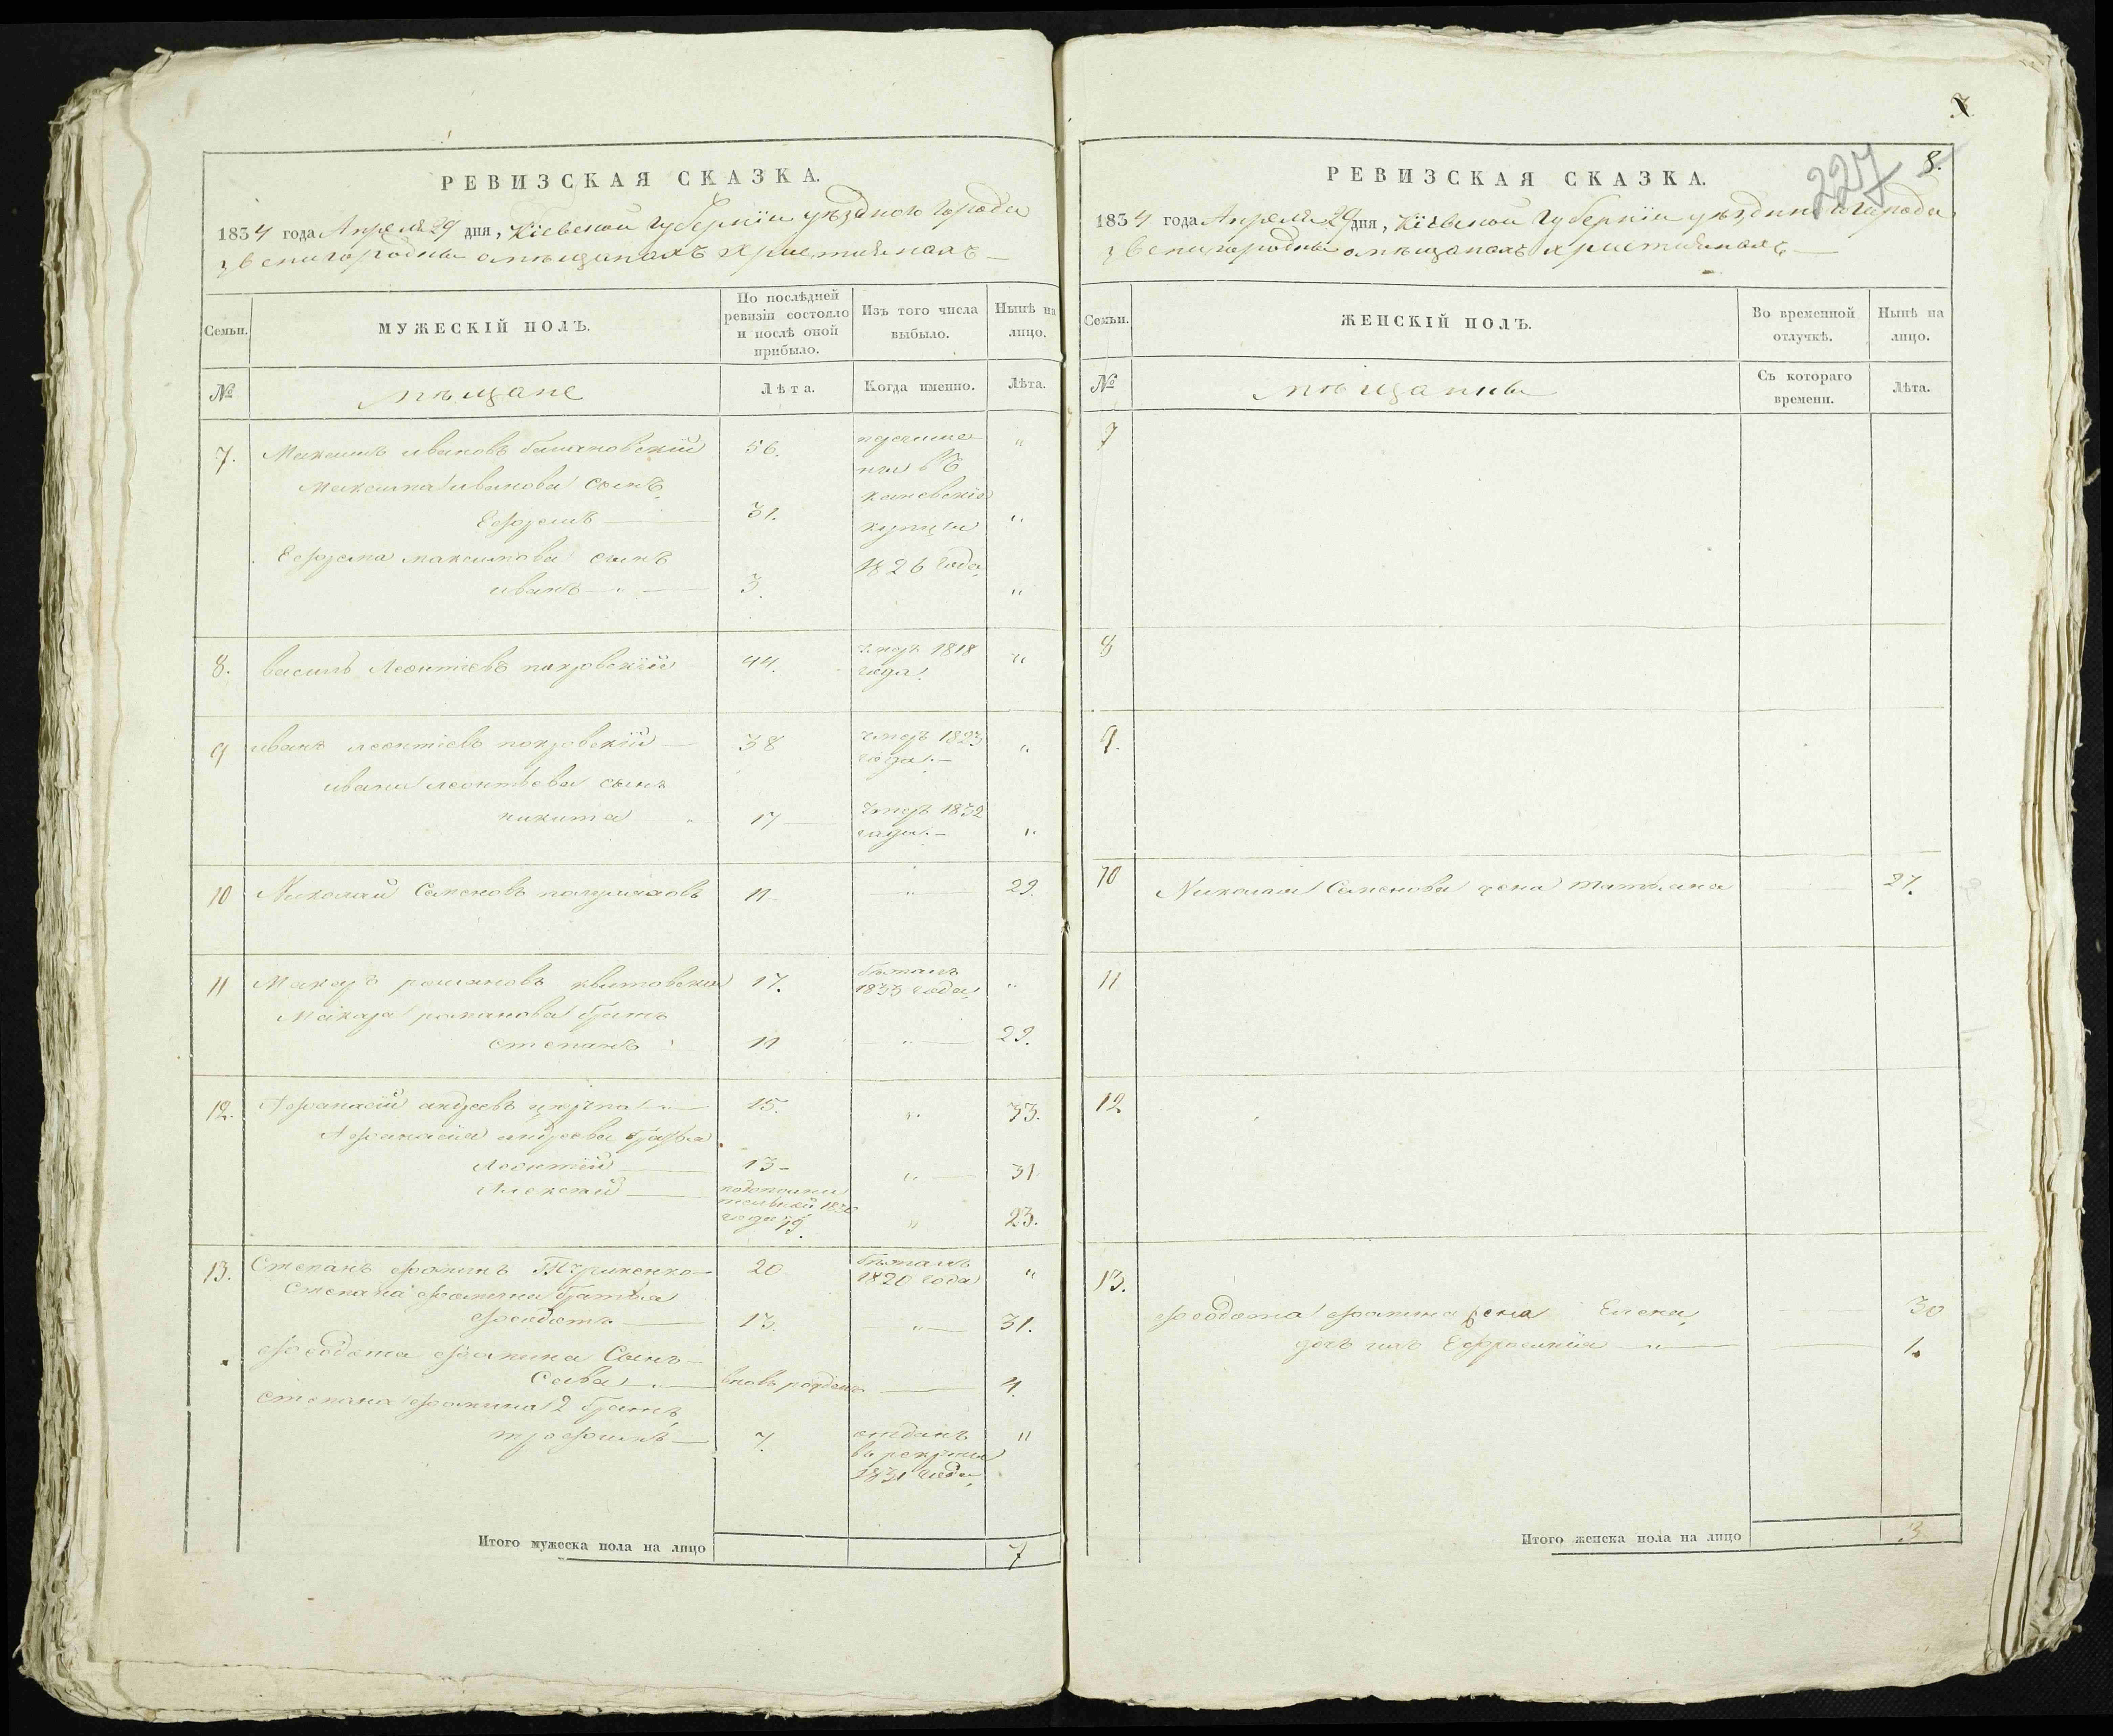 РЕВИЗСКАЯ СКАЗКА.
1834 года Апреля 29 дня, Кіевской Губерніи уѣзднаго города
Звенигородки омѣщанахъ христіянахъ
Семьи.
МУЖЕСКІЙ ПОЛЪ.
По послѣдней
ревизіи состояло
и послѣ оной
прибыло.
Изъ того числа
выбыло.
Нынѣ на
лицо.
№
мѣщане
Лѣта.
Когда именно.
Лѣта.
7. Максимъ ивановъ 56. "
Максима иванова сынъ
Ефремъ 31. каневскіе купцы "
Ефрема максимова сынъ 1826 года
иванъ 3. "
8. василь Леонтіевъ покровскій 44. умеръ 1818 "
года
9 иванъ леонтіевъ покровскій 38 умеръ 1823 "
года
ивана леонтьева сынъ
никита 17 умеръ 1832 "
года
10 Николай Семеновъ 11 " 29.
11 Макаръ романовъ 17. бѣжалъ "
1833 года
Макара романова братъ
степанъ 11 " 29.
12. Афанасій андреевъ 15. " 33.
Афанасія андреева братья
Леонтій 13 " 31
Алексѣй 1830 " 23.
года 19.
13. Степанъ фоминъ 20 бѣжалъ "
1820 года
Степана фомина братья
феодотъ 13 " 31.
феодота фомина Сынъ
Сава вновь рожденъ 4.
степана фомина 2 братъ
трофимъ 7. отданъ "
в рекруты
1831 года
Итого мужеска пола на лицо 7
227 8.
РЕВИЗСКАЯ СКАЗКА.
1834 года Апреля 29 дня, Кіевской Губерніи уѣзднаго города
Звенигородки омѣщанахъ христіянахъ
Семьи.
ЖЕНСКІЙ ПОЛЪ.
Во временной
отлучкѣ.
Нынѣ на
лицо.
№
мѣщанки
Съ котораго
времени.
Лѣта.
7
8
9.
10 Николая Семенова жена татьяна 27.
11
12
13.
феодота фомина жена Елена 30
дочь ихъ Ефросинія 1.
Итого женска пола на лицо 3